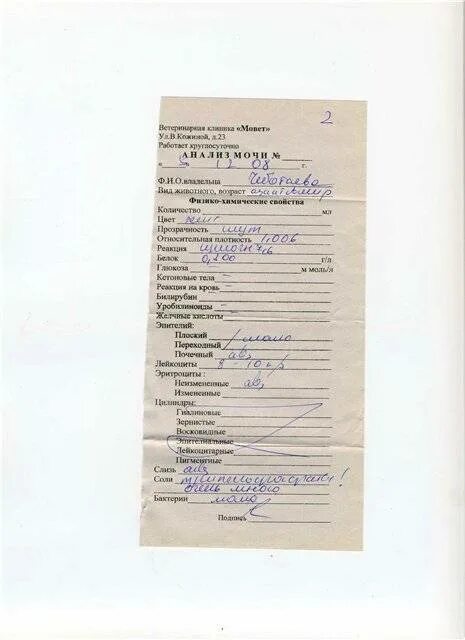 2
Ветеринарная клиника «Мовет»
Ул.В.Кожиной, д.23
Работает круглосуточно
АНАЛИЗ МОЧИ №
« 5 » 12 08 г.
Ф.И.О.владельца Чеботаева
Вид животного, возраст
Физико-химические свойства
Количество мл
Цвет
Прозрачность мут
Относительная плотность 1,006
Реакция щелочн
Белок 0,200 г/л
Глюкоза м моль/л
Кетоновые тела –
Реакция на кровь –
Билирубин
Уробилиноиды –
Желчные кислоты –
Эпителий:
Плоский
Переходный / мало
Почечный abs
Лейкоциты 8 - 10
Эритроциты :
Неизмененные abs
Измененные
Цилиндры:
Гиалиновые
Зернистые
Восковидные
Эпителиальные
Лейкоцитарные
Пигментные
Слизь abs
Соли трипельфосфаты!
очень много
Бактерии мало
Подпись